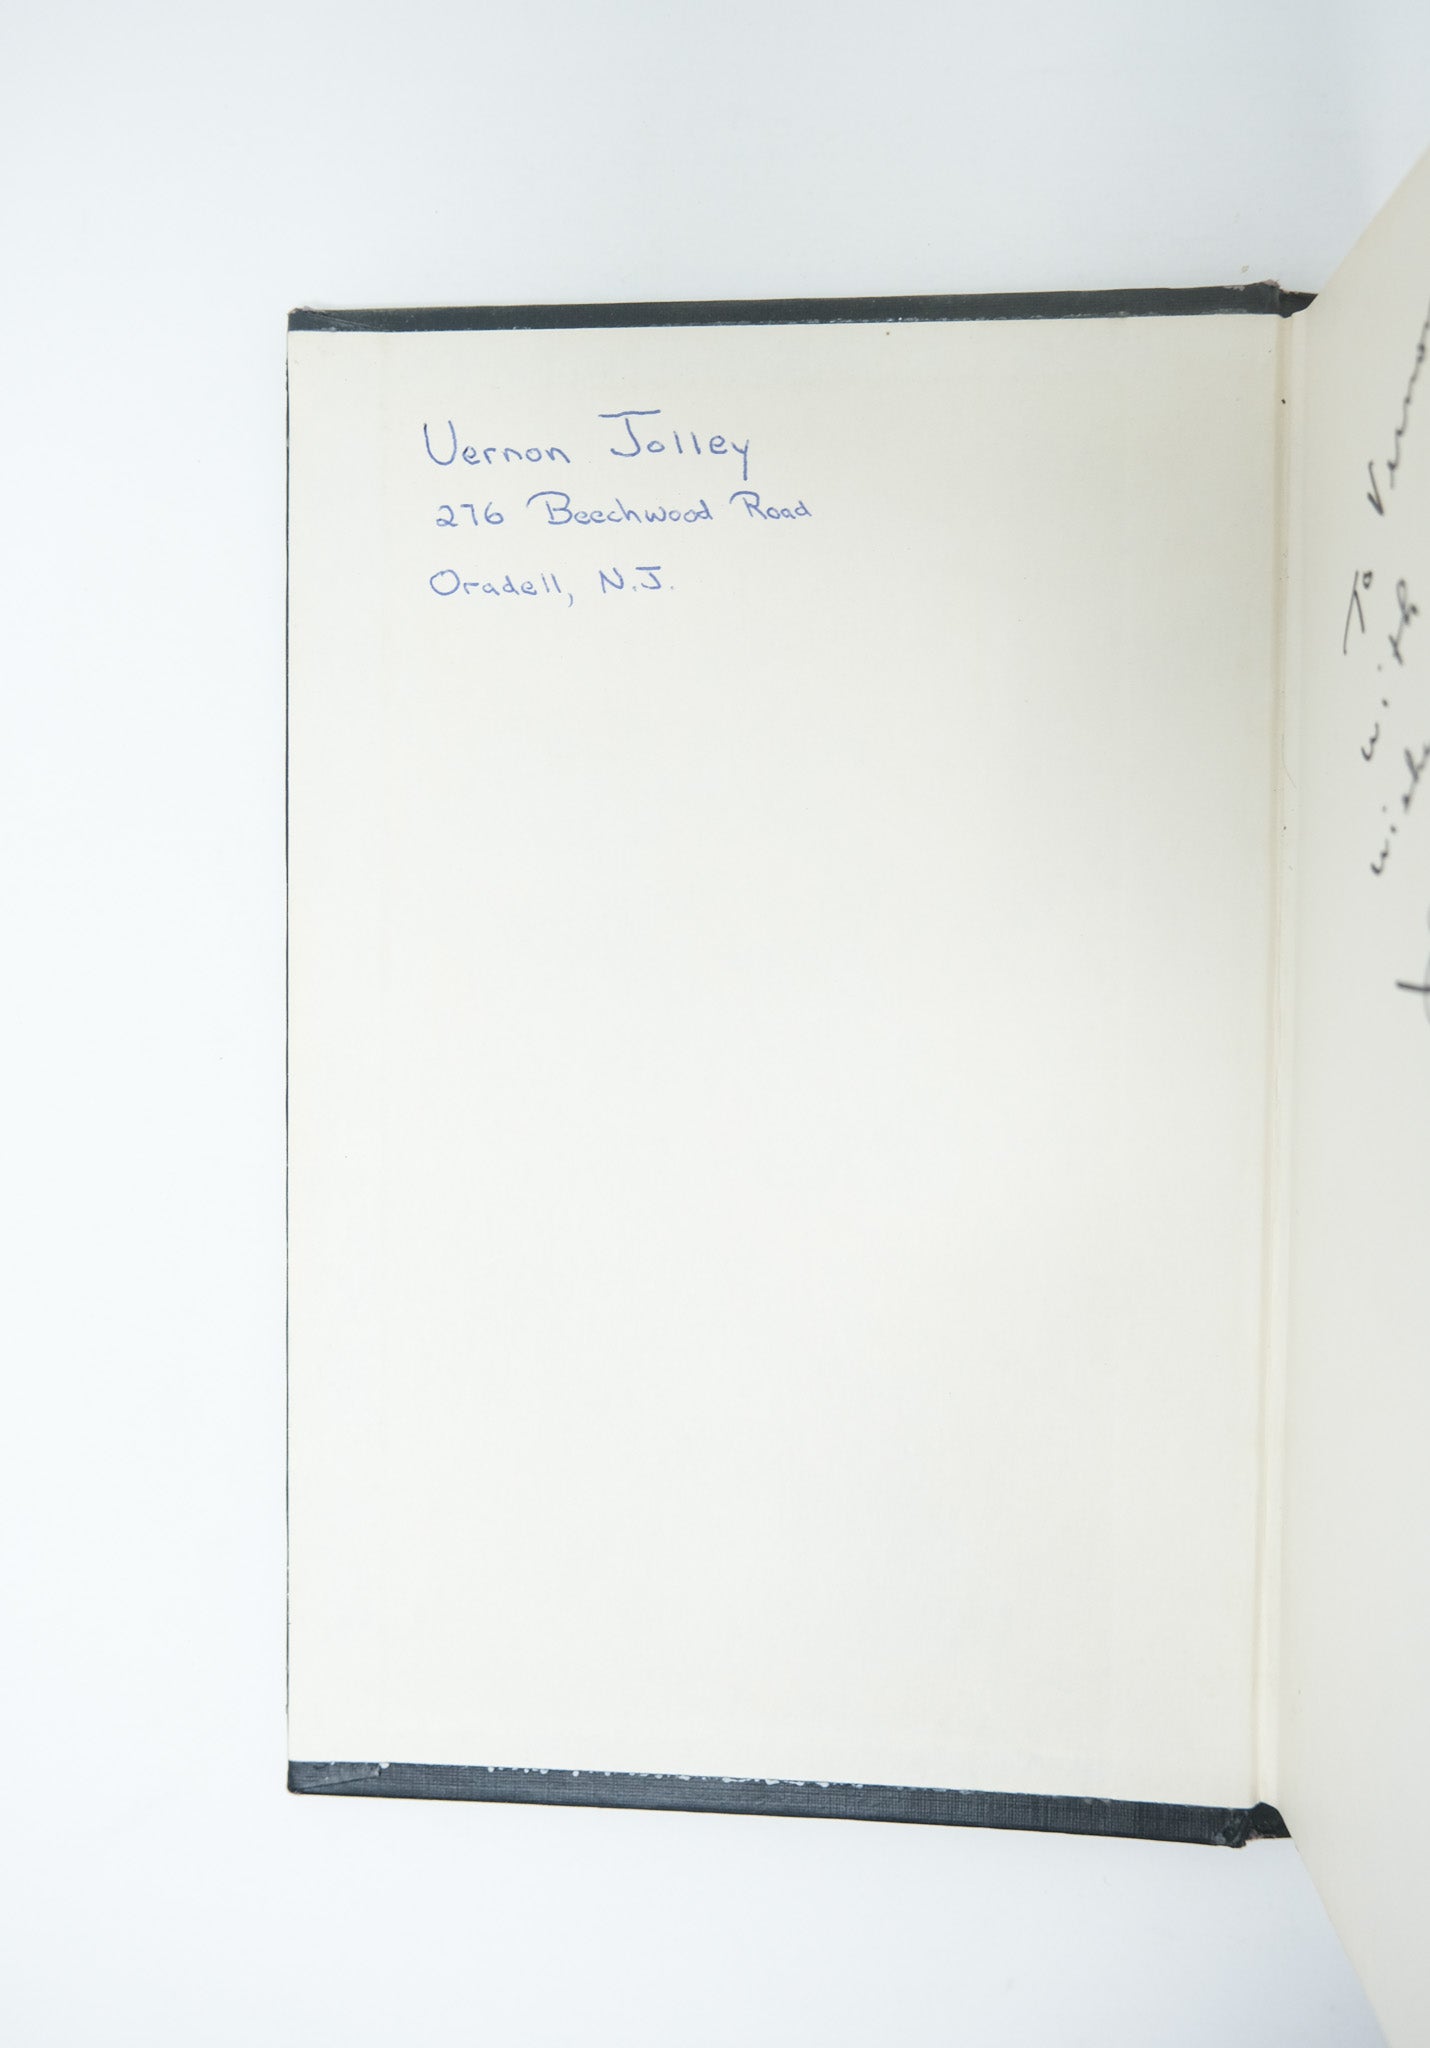 Vernon Jolley
276 Beechwood Road
Oradell, N.J.
To Vernon
with